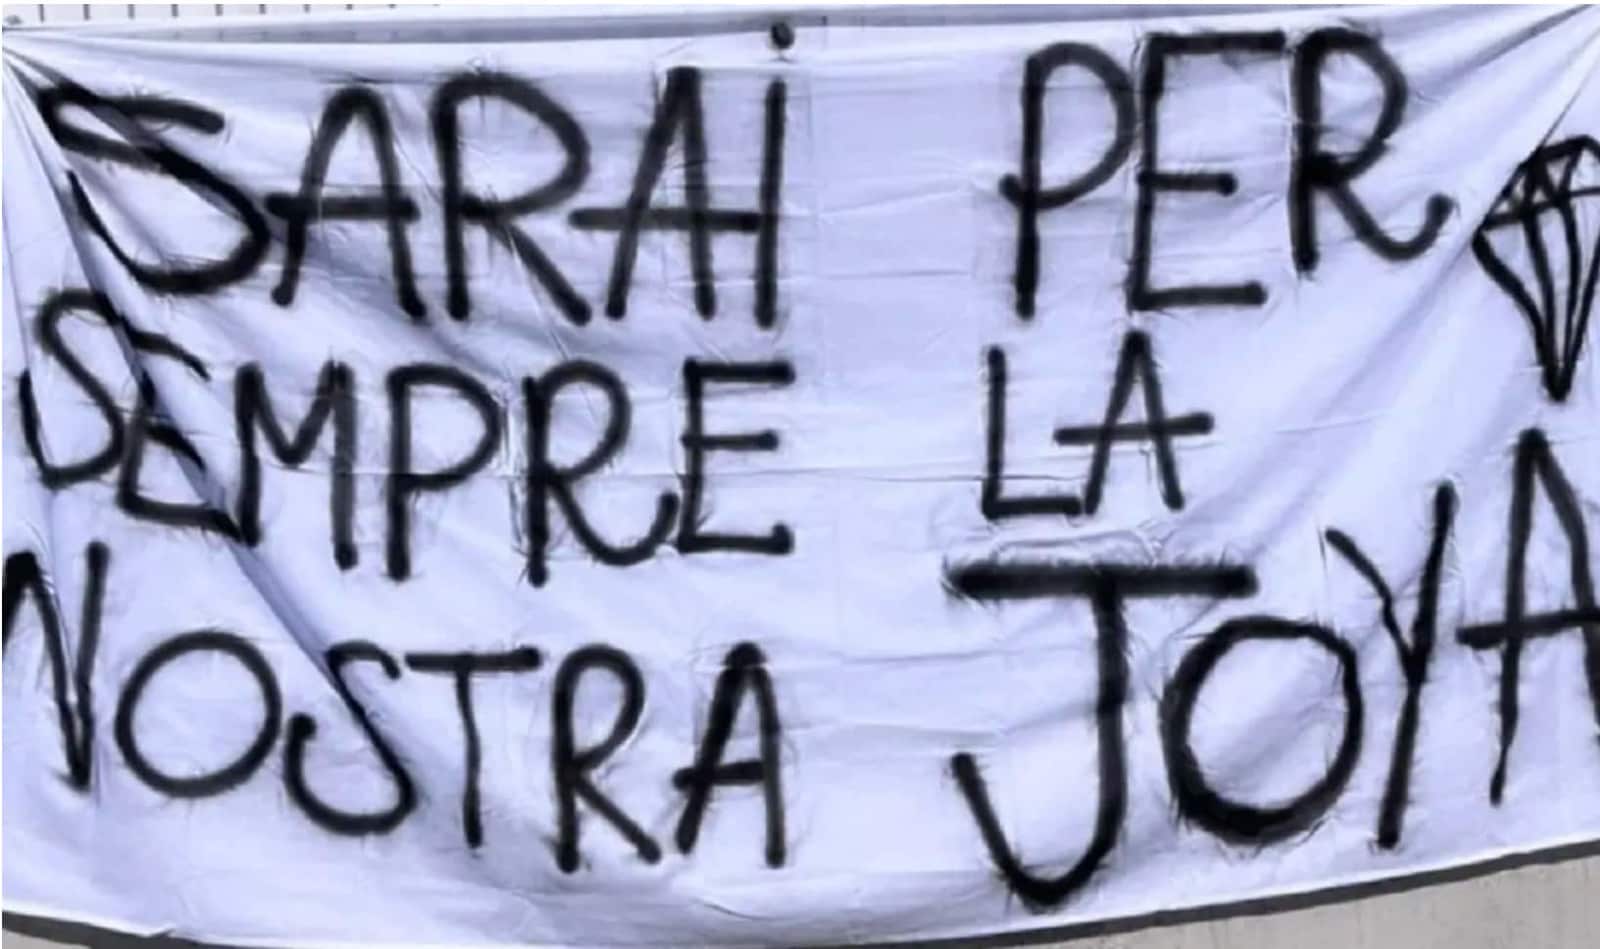 SARAi PER
SEMPRE LA
NOSTRA JOYA